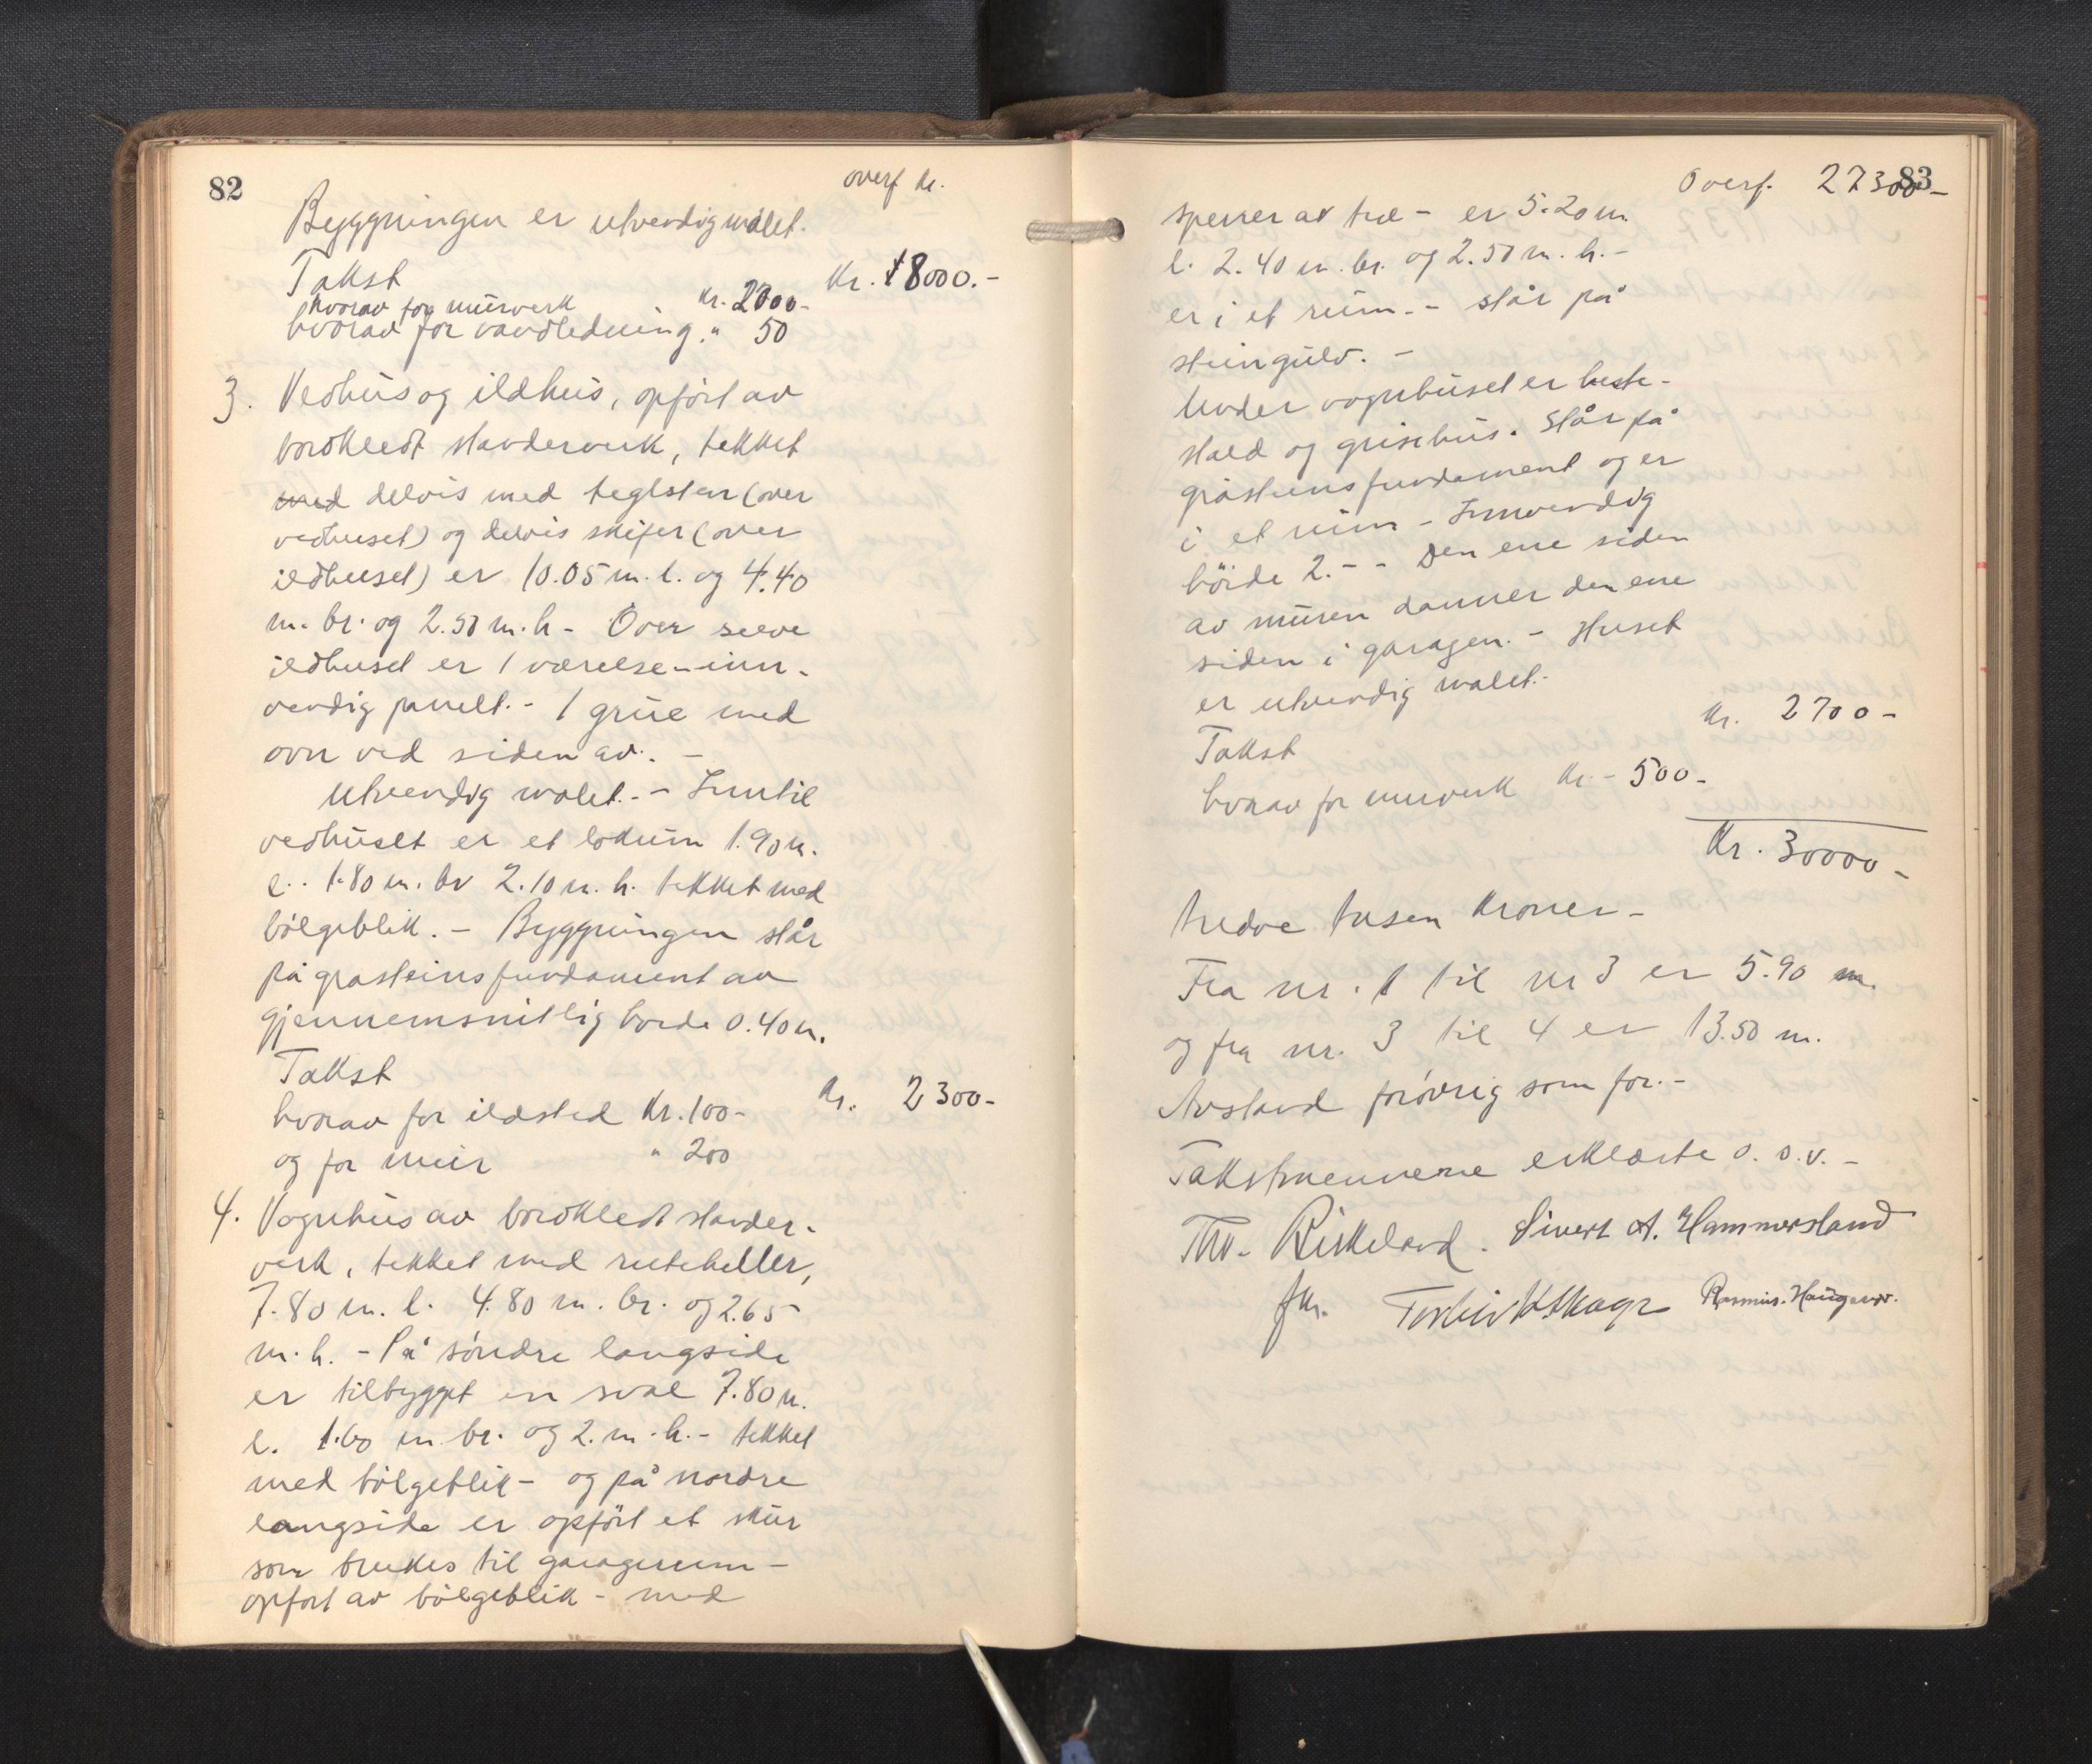 82
overf kr.
Byggningen er utvendig målet.
Takst Kr. 18000.-
hvorav for mürverk kr. 2000-
hvorav for vandledning. " 50
3. Vedhüs og ildhüs, opfört av
bordkledt stavderverk, tekket
med delvis med teglsten (over
vedhuset) og delvis skifer (over
ildhuset) er 10.05 m. l. og 4.40
m. br. og 2.50 m. h - Over selve
ildhuset er 1 værelse - inn-
vendig panelt. - 1 grüe med
ovn ved siden av. -
Utvendig malet. - Inntil
vedhüset er et lokum 1.90 m.
l. 1.80 m. br 2.10 m. h. tekket med
bölgeblik. - Byggningen står
på gråsteinsfundament av
gjennemsnitlig höide 0.40 m.
Takst
hvorav for ildsted Kr. 100- Kr. 2300-
og for mür " 200
4. Vognhüs av bordkledt stander-
verk, tekket med rüteheller,
7.80 m. l. 4.80 m. br. og 2.65
m. h. - På söndre langside
er tilbygget en sval 7.80 m.
l. 1.60 m. br. og 2. m. h. - tekket
med bölgeblik - og på nordre
langside er opfört et skür
som brukes til garagerum -
opfört av bölgeblik - med
83
Overf. 27300-
sperrer av træ - er 5.20 m.
l. 2.40 m. br. og 2.50 m. h. -
er i et rüm. - står på
steingülv. -
Under vognhüset er heste-
stald og grisehüs. Står på
gråsteinsfundament og er
i et rüm - Innvendig
höide 2. - - Den ene siden
av müren danner den ene
siden i garagen. - Huset
er utvendig malet. -
Takst kr. 2700-
hvorav for mürverk kr. - 500-
Kr. 30000-
tredve tusen kroner -
Fra nr. 1 til nr 3 er 5.90 m.
og fra nr. 3 til 4 er 13.50 m.
Avstand forövrig som för. -
Takstmennene erklærte o. s. v. -
Thv. Birkeland. Sivert A. Hammersland
fkr. Rasmus Haugen